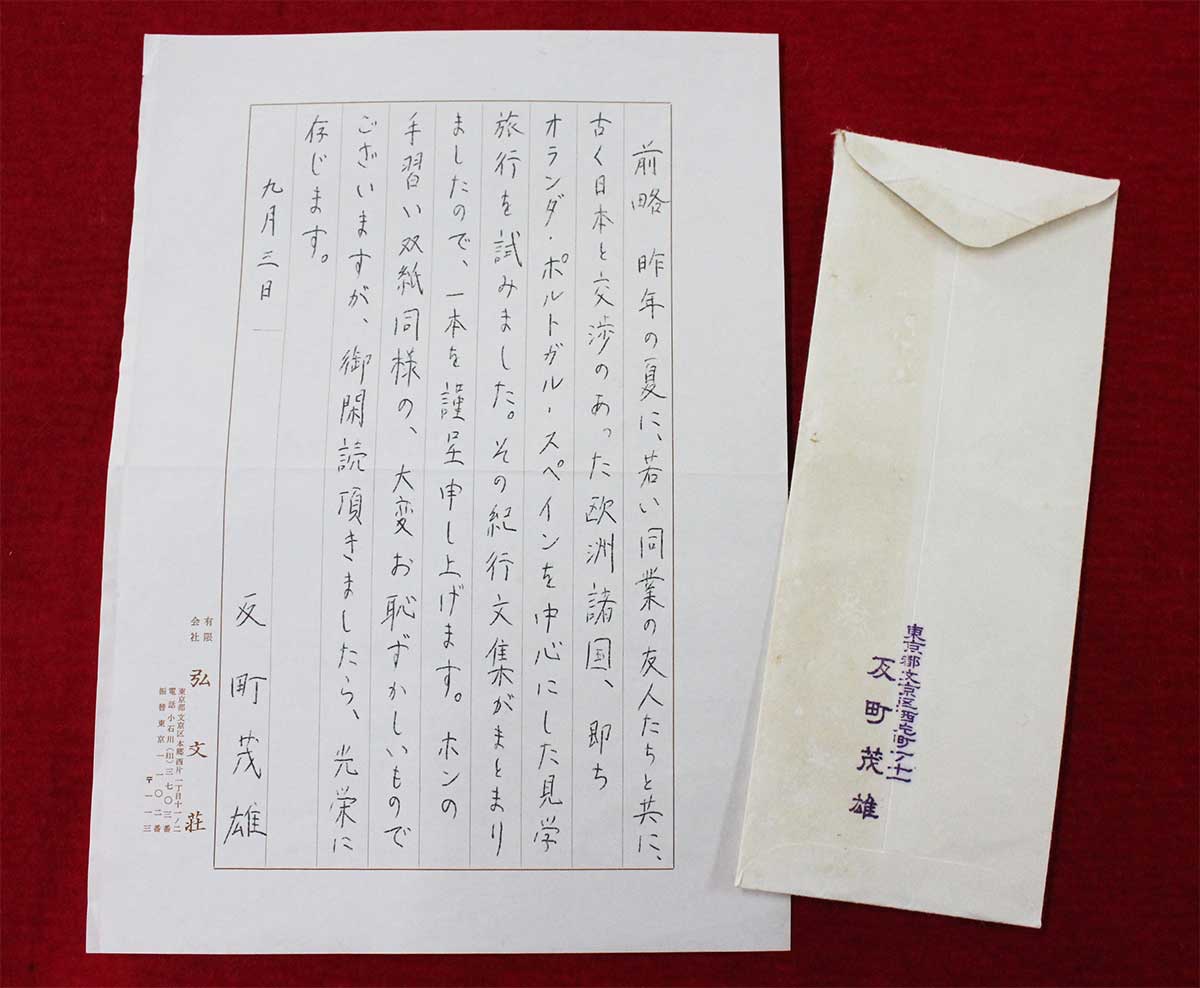 前略　昨年の夏に、若い同業の友人たちと共に、
古く日本と交渉のあった欧洲諸国、即ち
オランダ・ポルトガル・スペインを中心にした見学
旅行を試みました。その紀行文集がまとまり
ましたので、一本を謹呈申し上げます。ホンの
手習い双紙同様の、大変お恥ずかしいもので
ございますが、御閑読頂きましたら、光栄に
存じます。
九月三日
反町茂雄
有限会社　弘文荘
東京都文京区本郷西片一丁目十一ノ二
電話小石川(811)三七〇三番
振替東京一一〇二番
〒一一三
東京都文京区西片町一ノ十一
反町茂雄